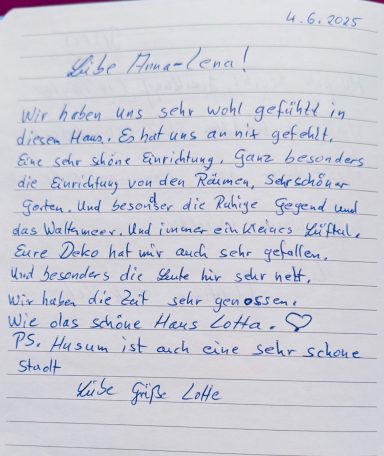 4.6.2025
Liebe Anna-Lena!
Wir haben uns sehr wohl gefühlt in
diesen Haus. Es hat uns an nix gefehlt.
Eine sehr schöne Einrichtung. Ganz besonders
die Einrichtung von den Räumen, Sehr schöner
Garten. Und besonder die Ruhige Gegend und
das Wattemeer. Und immer ein kleines Lüftul.
Eure Deko hat mir auch sehr gefallen.
Und besonders die Leute hir sehr nett.
Wir haben die Zeit sehr genossen.
Wie das schöne Haus Lotta. ♡
PS. Husum ist auch eine sehr schöne
Stadt
Liebe Grüße Lotte